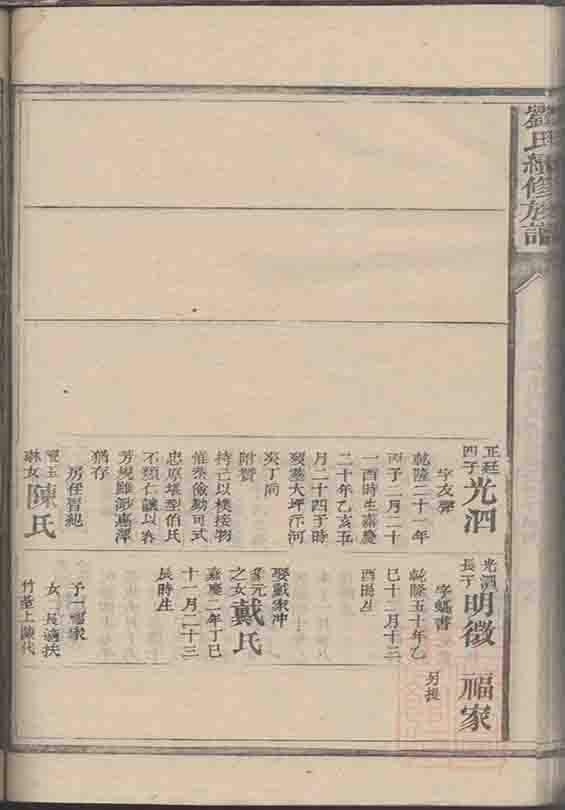 劉氏續修族譜
正廷
四子
光泗
字友聲
乾隆二十一年
丙子二月二十
一酉時生嘉慶
二十年乙亥五
月二十四子時
歿葬大坪
癸丁向
附贊
持己以樸接物
惟柔儉勤可式
忠厚堪型伯氏
不類仁讓以
芳規雖渺
猶存
房
女
陳氏
光泗
長子
明徵
字書
乾隆五十年乙
巳十二月十三
酉時生
娶戴家冲
元
之女
戴氏
嘉慶二年丁巳
十一月二十三
辰時生
子一福家
女一長適扶
竹
福家
另提